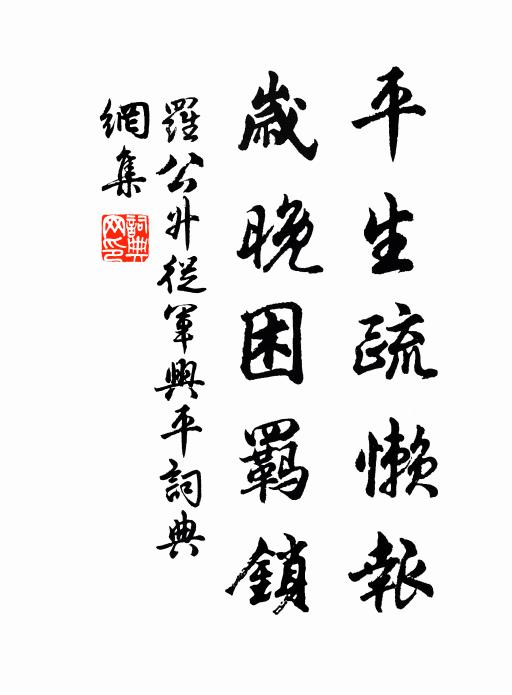 平生疏懶報
歲晚困羈鎖
羅公升從軍興平詞典
網集
詞典
网印